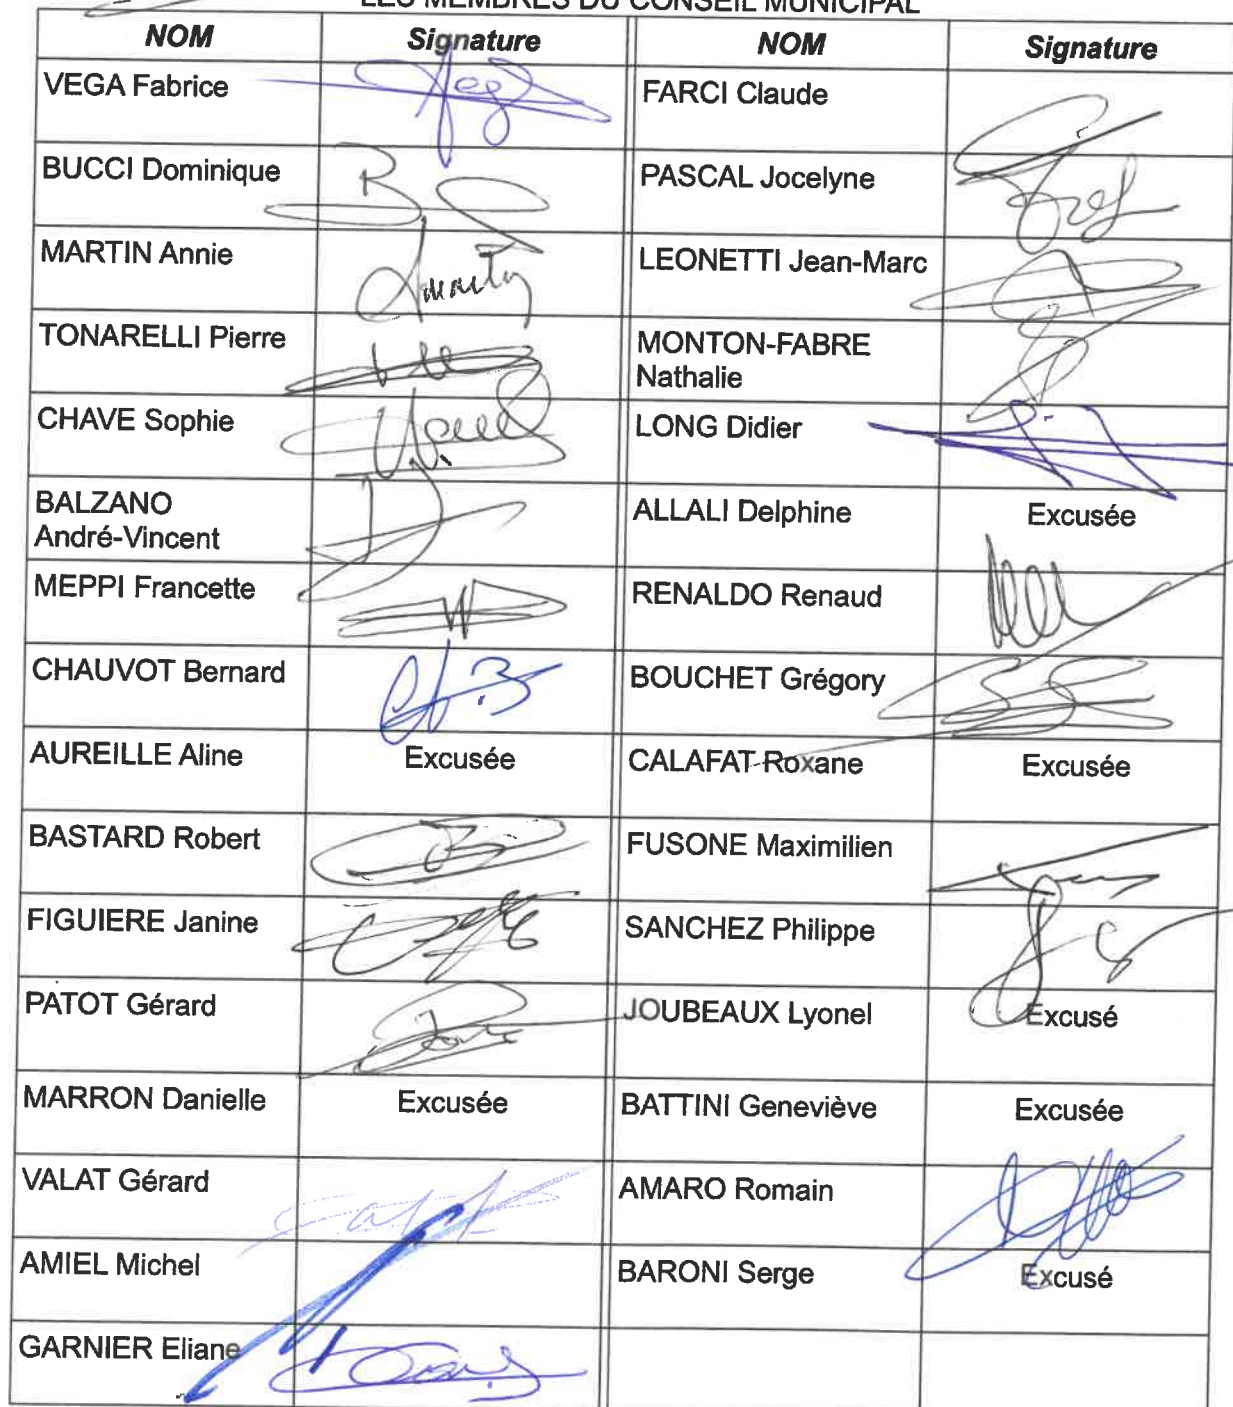 LES MEMBRES DU CONSEIL MUNICIPAL
NOM Signature NOM Signature
VEGA Fabrice FARCI Claude
BUCCI Dominique PASCAL Jocelyne
MARTIN Annie LEONETTI Jean-Marc
TONARELLI Pierre MONTON-FABRE
Nathalie
CHAVE Sophie LONG Didier
BALZANO ALLALI Delphine Excusée
André-Vincent
MEPPI Francette RENALDO Renaud
CHAUVOT Bernard BOUCHET Grégory
AUREILLE Aline Excusée CALAFAT Roxane Excusée
BASTARD Robert FUSONE Maximilien
FIGUIERE Janine SANCHEZ Philippe
PATOT Gérard JOUBEAUX Lyonel Excusé
MARRON Danielle Excusée BATTINI Geneviève Excusée
VALAT Gérard AMARO Romain
AMIEL Michel BARONI Serge Excusé
GARNIER Eliane